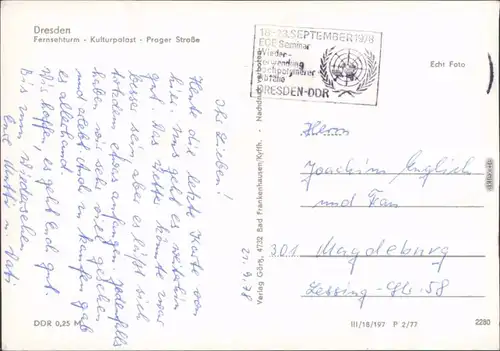 Dresden
Fernsehturm - Kulturpalast - Prager Straße
Ihr Lieben!
Heute die letzte Karte von
hier. Uns geht es weiterhin
gut. Das Wetter könnte zwar
besser sein, aber es läßt sich
trotzdem etwas anfangen. Jedenfalls
haben wir sehr viel gesehen
und erlebt. Auch zu kaufen gab
es allerhand.
Wir hoffen, es geht Euch gut.
Bis zum Wiedersehen
Eure Mutti u. Vati
21.9.78
DDR 0,25 M
Verlag Görg, 4732 Bad Frankenhausen/Kyffh. · Nachdruck verboten
18.-23.SEPTEMBER 1978
ECE Seminar
Wieder-
verwendung
hochpolymerer
Abfälle
DRESDEN-DDR
Echt Foto
Herrn
Joachim Englisch
und Frau
301 Magdeburg
Lessing-Str. 58
III/18/197 P 2/77
2280